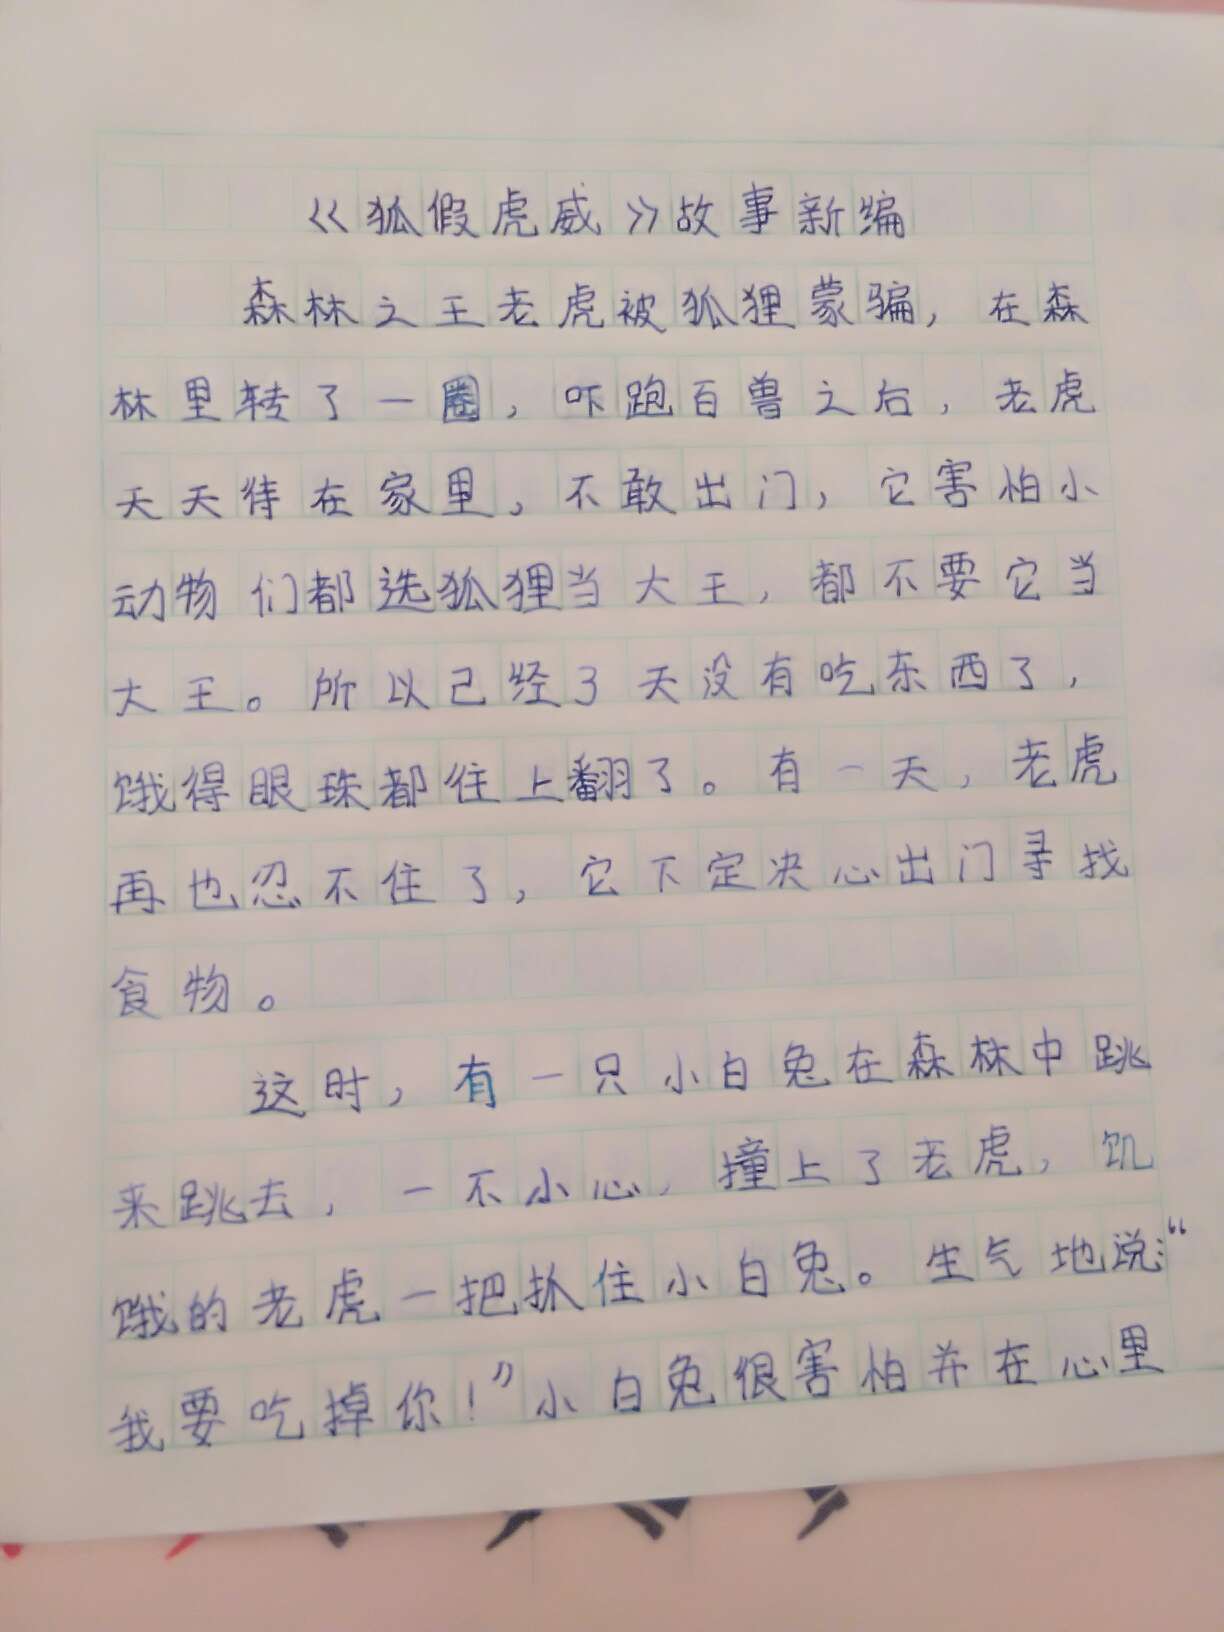 《狐假虎威》故事新编
森林之王老虎被狐狸蒙骗，在森
林里转了一圈，吓跑百兽之后，老虎
天天待在家里，不敢出门，它害怕小
动物们都选狐狸当大王，都不要它当
大王。所以已经3天没有吃东西了，
饿得眼珠都往上翻了。有一天，老虎
再也忍不住了，它下定决心出门寻找
食物。
这时，有一只小白兔在森林中跳
来跳去，一不小心，撞上了老虎，饥
饿的老虎一把抓住小白兔。生气地说：“
我要吃掉你！”小白兔很害怕并在心里